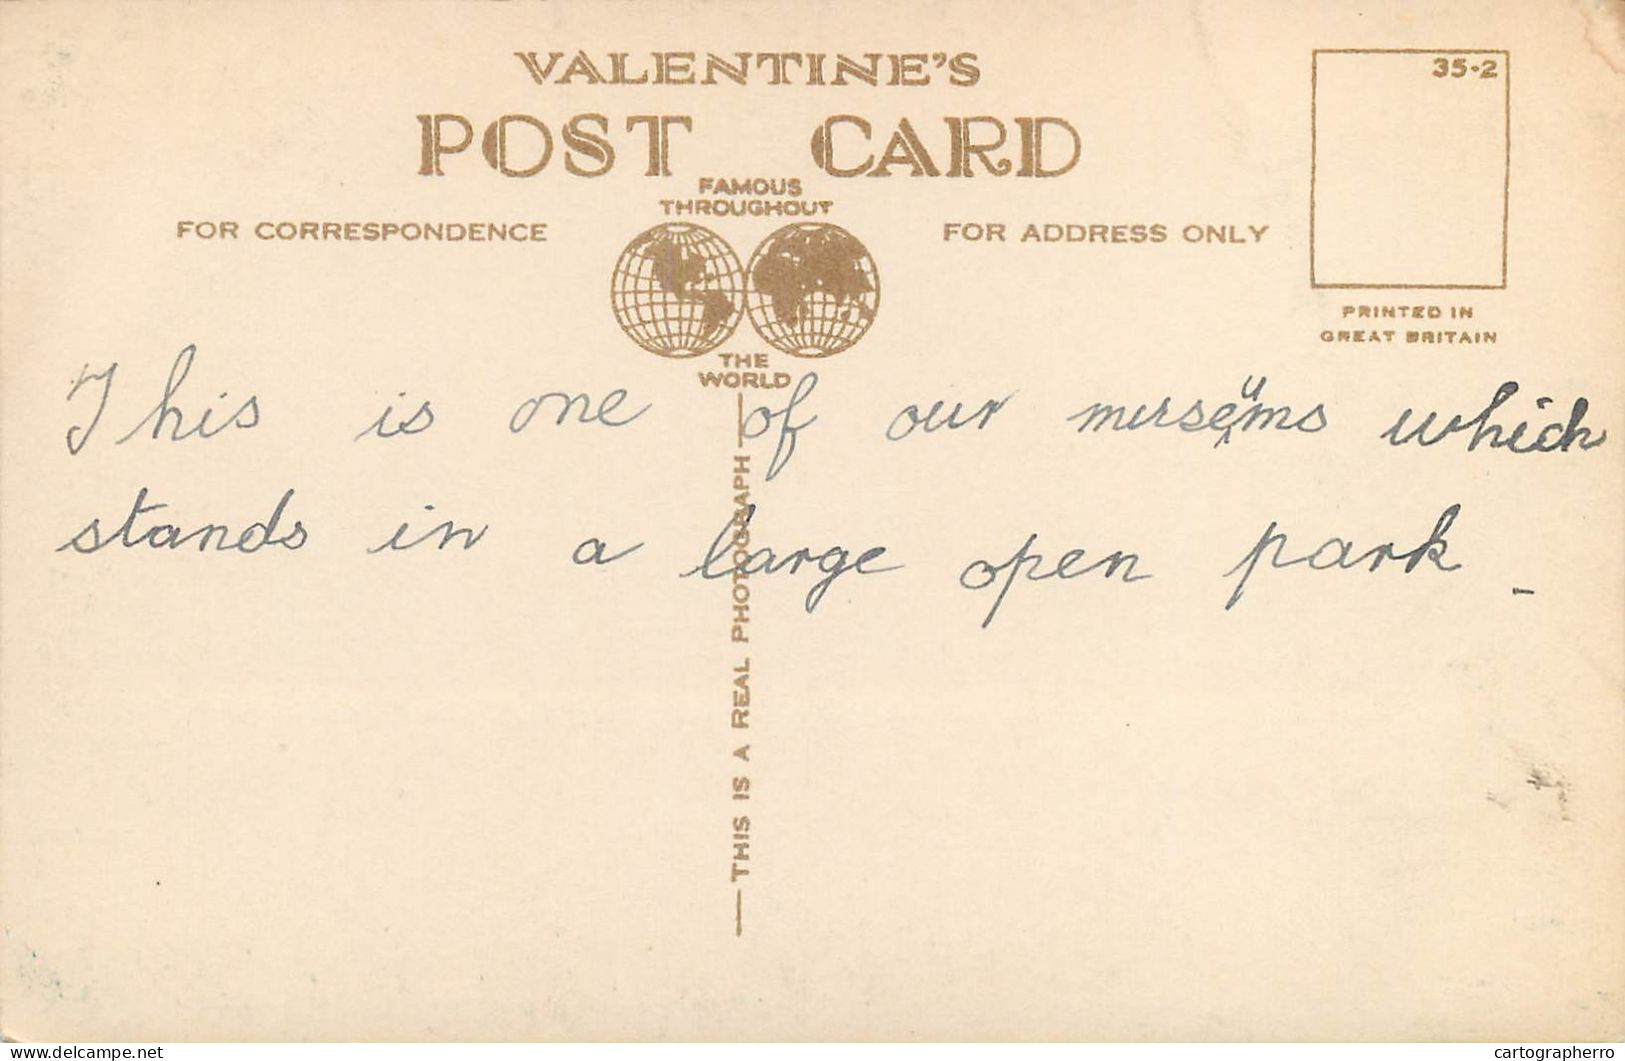 VALENTINE'S
POST CARD
35-2
FAMOUS
THROUGHOUT
FOR CORRESPONDENCE
FOR ADDRESS ONLY
PRINTED IN
GREAT BRITAIN
THE
WORLD
This is one of our museums which
stands in a large open park -
THIS IS A REAL PHOTOGRAPH
delcampe.net
cartographerro